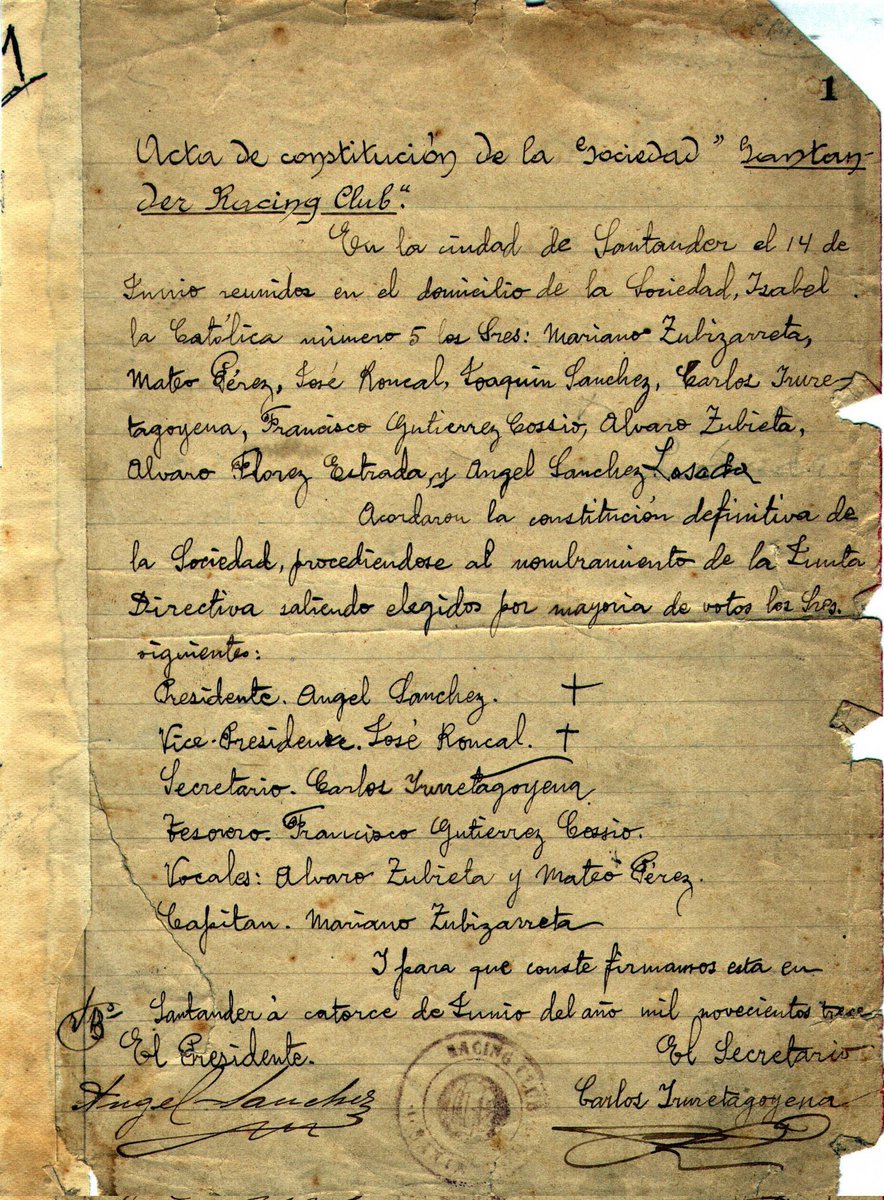 1
1
Acta de constitución de la Sociedad " Santan-
der Racing Club".
En la ciudad de Santander el 14 de
Junio reunidos en el domicilio de la Sociedad, Isabel
la Católica número 5 los Sres: Mariano Zubizarreta,
Mateo Pérez, José Roncal, Joaquin Sanchez, Carlos Irure-
tagoyena, Francisco Gutierrez Cossio, Alvaro Zubieta,
Alvaro Florez Estrada, y Angel Sanchez Losada
Acordaron la constitución definitiva de
la Sociedad, procediendose al nombramiento de la Junta
Directiva saliendo elegidos por mayoria de votos los Sres.
siguientes:
Presidente. Angel Sanchez. +
Vice-Presidente. José Roncal. +
Secretario. Carlos Iruretagoyena
Tesorero. Francisco Gutierrez Cossio.
Vocales: Alvaro Zubieta y Mateo Pérez.
Capitan. Mariano Zubizarreta
I para que conste firmamos esta en
Santander á catorce de Junio del año mil novecientos trece
VºBº
El Presidente. El Secretario
Angel Sanchez Carlos Iruretagoyena
RACING CLUB